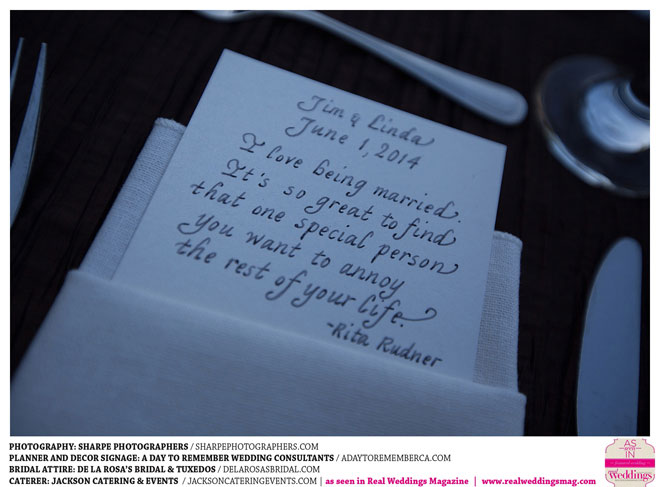 Jim & Linda
June 1, 2014
I love being married.
It's so great to find
that one special person
you want to annoy
the rest of your life.
-Rita Rudner
PHOTOGRAPHY: SHARPE PHOTOGRAPHERS / SHARPEPHOTOGRAPHERS.COM
PLANNER AND DECOR SIGNAGE: A DAY TO REMEMBER WEDDING CONSULTANTS / ADAYTOREMEMBERCA.COM
BRIDAL ATTIRE: DE LA ROSA'S BRIDAL & TUXEDOS / DELAROSASBRIDAL.COM
CATERER: JACKSON CATERING & EVENTS / JACKSONCATERINGEVENTS.COM | as seen in Real Weddings Magazine | www.realweddingsmag.com
AS
SEEN
IN
Weddings